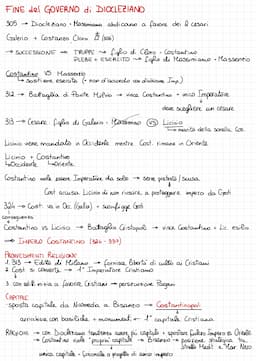 FINE del GOVERNO di DIOCLEZIANO
305 → Diocleziano + Massimiano abdicano a favore dei 2 cesari
Galerio + Costanzo Cloro (306)
→ SUCCESSIONE → TRUPPE → figlio di Cloro = Costantino
PLEBE + ESERCITO → figlio di Massimiano = Massenzio
Costantino VS Massenzio
312 → Battaglia di Ponte Milvio → vince Costantino + unico Imperatore
deve scegliere un cesare
313 → Cesare: figlio di Galerio = Massimino VS Licinio
→ marito della sorella Cos.
Licinio viene mandato in Occidente mentre Cost. rimane in Oriente
Licinio + Costantino
↳ Occidente ↳ Oriente
Costantino vuole essere Imperatore da solo →
Cost accusa Licinio di non riuscire a proteggere impero da Goti
324 → Cost. va in Occ. (Galia) + sconfigge Goti
conseguenza
Costantino vs Licinio → Battaglia Crisopoli → vince Costantino + Lic. esilio
→ IMPERO COSTANTINO (324 - 337)
PROVVEDIMENTI RELIGIONE
1. 313 → Editto di Milano → fornisce libertà di culto ai Cristiani
2. Cost si converte → 1° Imperatore Cristiano
3. con editti invia a favorire Cristiani → persecuzione Pagani
CAPITALE
sposta capitale da Nicomedia a Bisanzio → Costantinopoli
arricchisce con basiliche + monumenti → 1° capitale cristiana
RAGIONI → con Diocleziano tendenza avere più capitali + spostare fulcro Impero a Oriente
→ Costantino vuole "propria capitale" → Bisanzio → posizione strategica tra
Stretto Medit. e Mar Nero
unica capitale = Concordia a progetto di unico impero